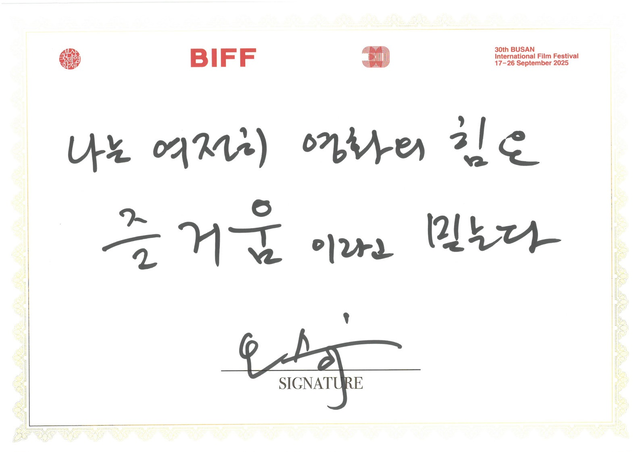 BIFF
30th BUSAN
International Film Festival
17-26 September 2025
나는 여전히 영화의 힘은
즐거움 이라고 믿는다
SIGNATURE